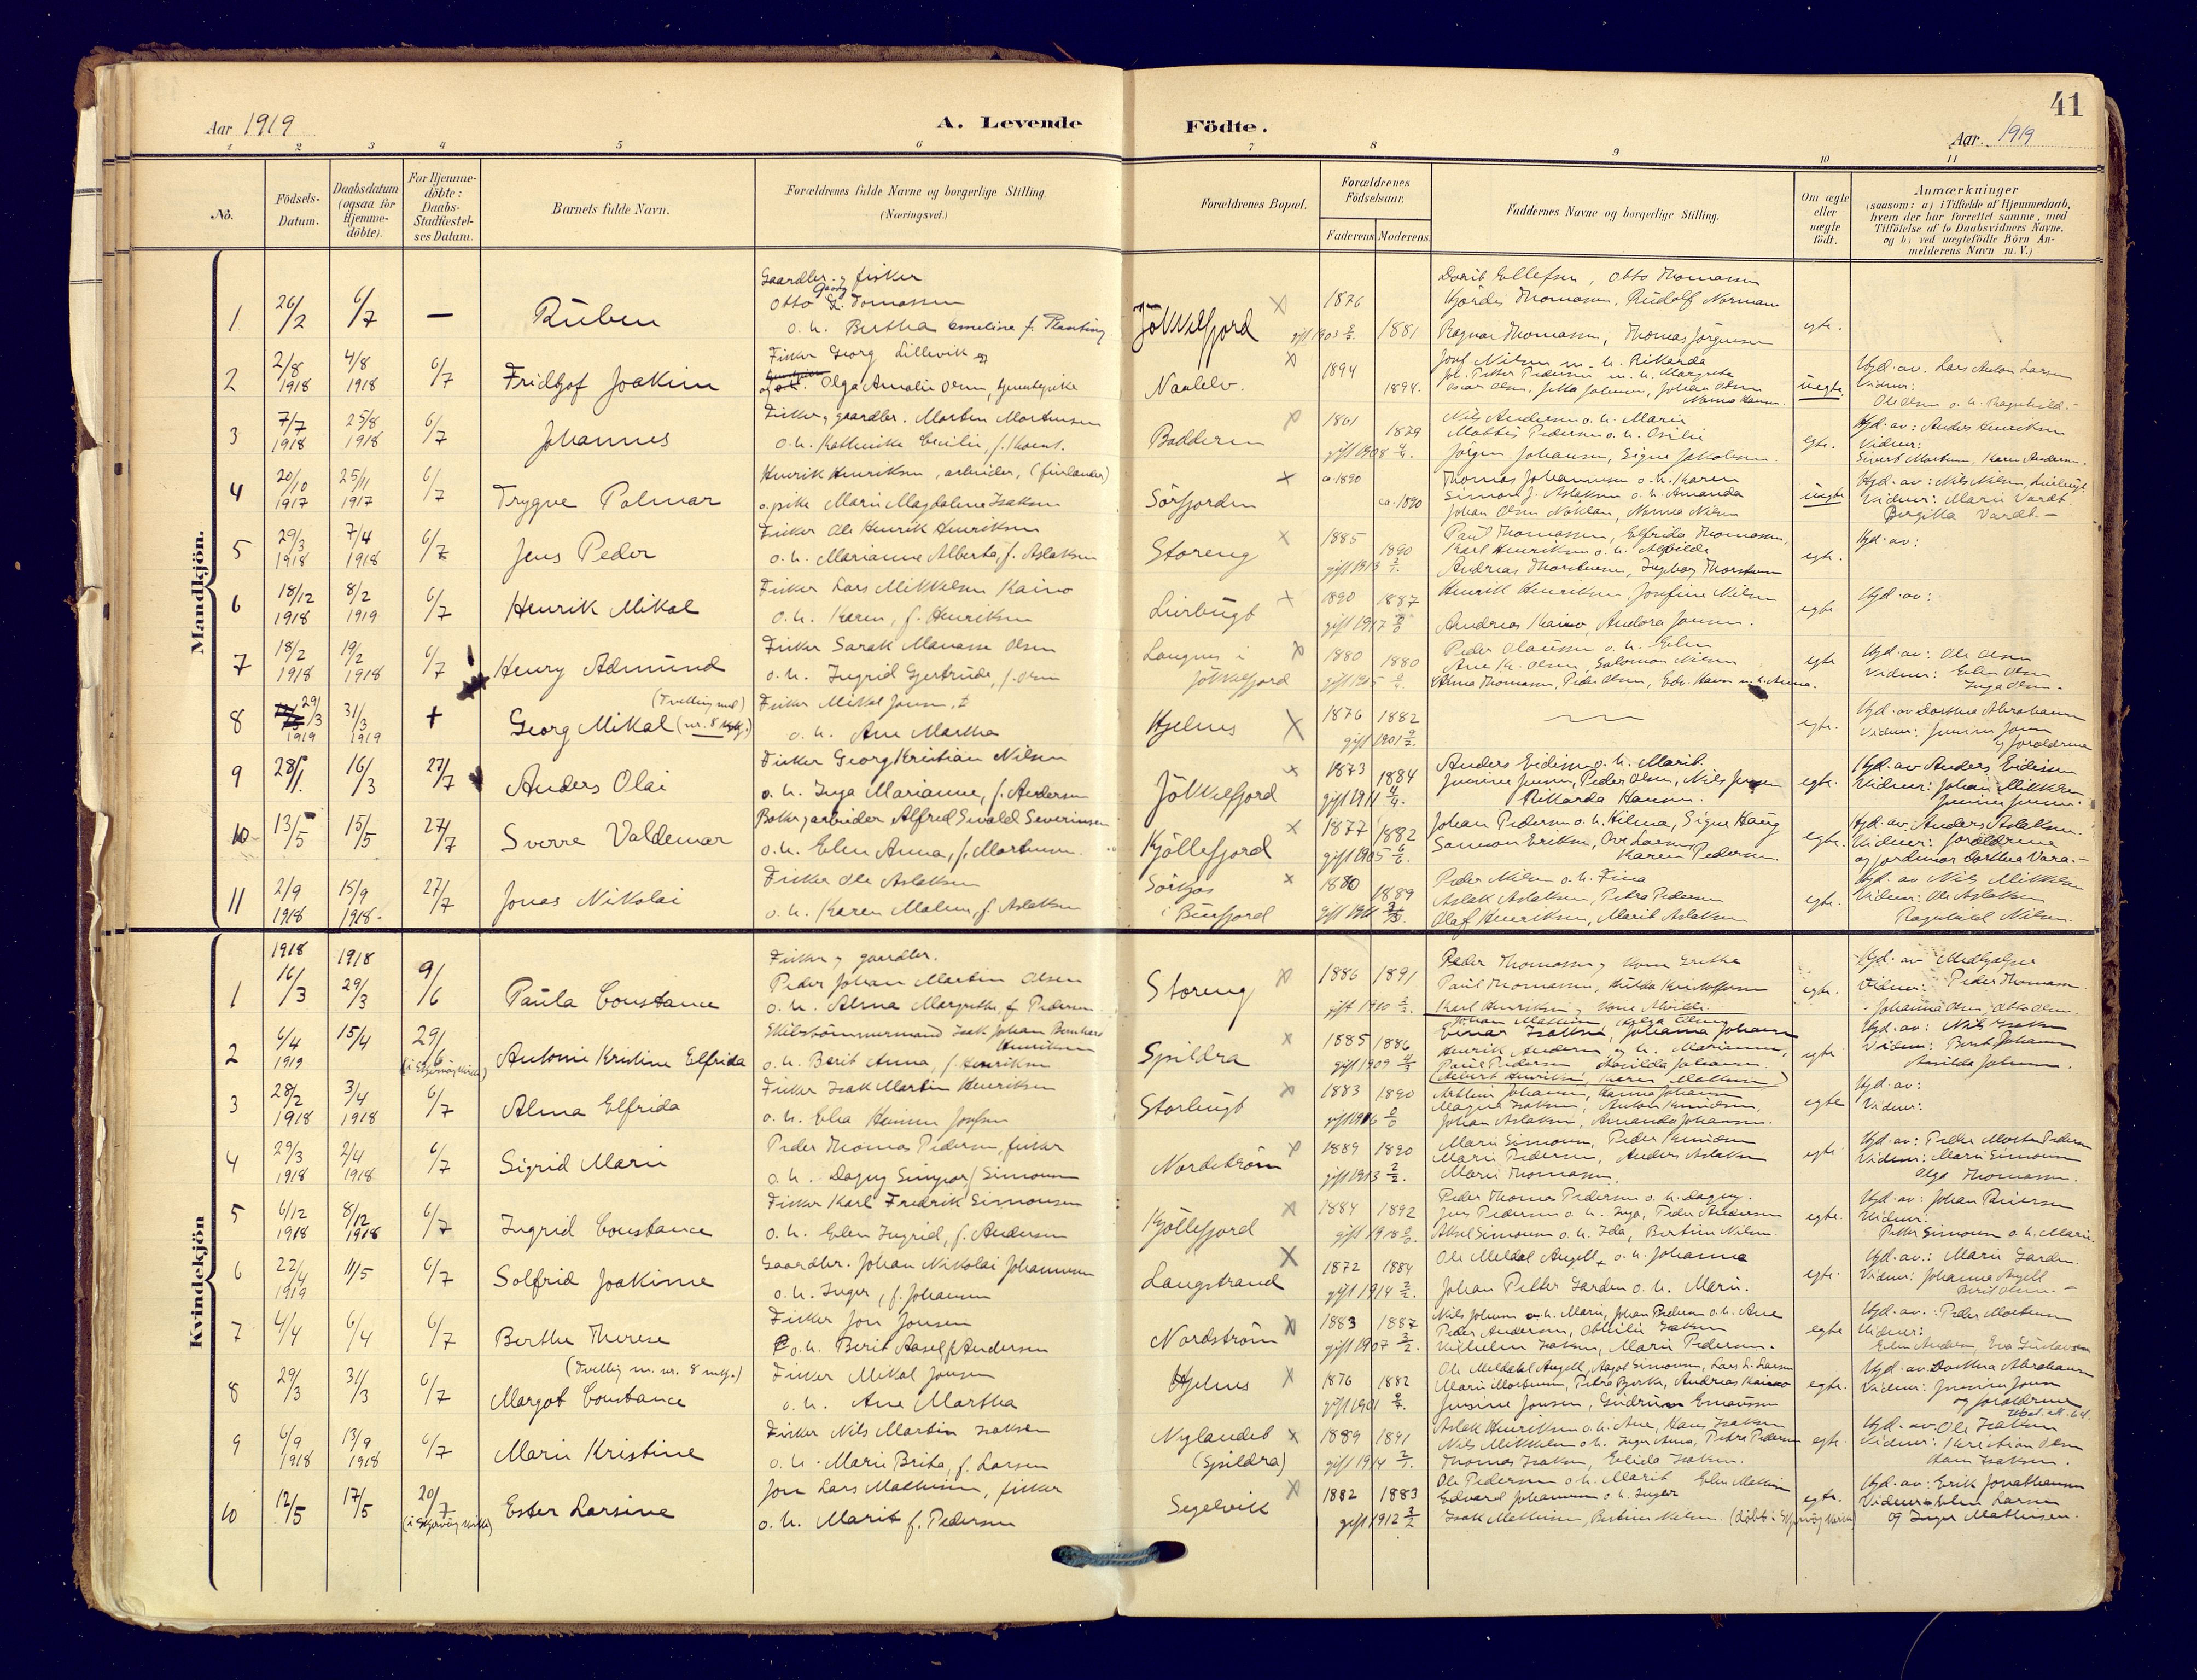 41
Aar 1919
A. Levende
Födte.
Aar. 1919
1 2 3 4 5 6 7 8 9 10 11
No.
Födsels-
Datum.
Daabsdatum
(ogsaa for
Hjemme-
döbte).
For Hjemme-
döbte:
Daabs-
Stadfæstel-
ses Datum.
Barnets fulde Navn.
Forældrenes fulde Navne og borgerlige Stilling.
(Næringsvei.)
Forældrenes Bopæl.
Forældrenes
Födselsaar.
Faderens Moderens
Faddernes Navne og borgerlige Stilling.
Om ægte
eller
uægte
födt.
Anmærkninger
(saasom: a) i Tilfælde af Hjemmedaab,
hvem der har forrettet samme, med
Tilföielse af to Daabsvidners Navne.
og b) ved uægtefödte Börn An-
melderens Navn m. V.)
Mandkjön.
1 26/2 6/7 — Ruben
Gaardbr. og fisker
Otto Georg Tomassen
o. h. Bertha Emeline f.
Jökkelfjord × 1876 gift 1903 1881
Dorit Ellefsen, Otto Thomassen
Hjördis Thomassen, Rudolf Norman
Ragnar Thomassen, Thomas Jörgensen
egte.
2 2/8 1918 4/8 1918 6/7 Fridtjof Joakim
Fisker Georg Lillevik og
Olga Amalie Orm,
× 1894 1894.
Josef Nilsen m. h. Rikarda
uegte.
Hjd. av. Lars Anton Larsen
Vidner:
Ole Olsen o. h. Ragnhild.-
3 7/7 1918 25/8 1918 6/7 Johannes
Fisker, gaardbr. Morten Mortensen
o. h. Kathinka Cecilie, f.
Badderen × 1861 1879 gift 1908
Nils Andersen o. h. Marie
Mathis Pedersen o. h. Osilie
Jörgen Johansen, Signe Jakobsen.
egte.
Hjd. av: Anders Henriksen
Vidner:
Sivert Mortensen, Karen Andersen.
4 20/10 1917 25/11 1917 6/7 Trygve Palmar
Henrik Henriksen, arbeider, (finlænder)
o. pike Marie Magdalene Isaksen
Sörfjorden × ca. 1890 ca. 1890
Thomas Johannesen o. h. Karen
Simon J. Aslaksen o. h. Amanda
Johan Olsen Noklan, Nanna Nilsen
uegte
Hjd. av: Nils Nilsen,
Vidner: Marie Vardt.
Birgitta Vardt.-
5 29/3 1918 7/4 1918 6/7 Jens Peder
Fisker Ole Henrik Henriksen
o. h. Marianne Alberta, f. Aslaksen
Storeng × 1885 1890 gift 1913
Paul Thomassen, Elfrida Thomassen,
Karl Henriksen o. h. Alvilde
Andreas Thorstensen, Ingborg Thorstensen
egte.
Hjd. av:
6 18/12 1918 8/2 1919 6/7 Henrik Mikal
Fisker Lars Mikkelsen Kaino
o. h. Karen, f. Henriksen
Lirbugt × 1890 1887 gift 1917
Henrik Henriksen, Josefine Nilsen
Andreas Kaino, Andora Jensen.
egte
Hjd. av:
7 18/2 1918 19/2 1918 6/7 Henry Admund
Fisker Sarak Manasse Olsen
o. h. Ingrid Gjertrude, f. Orm
Langnes i
Jökkelfjord × 1880 1880
Peder Olaussen o. h. Elen
Ane Kr. Olsen, Salomon Nilsen
Alma Thomassen, Peder Olsen, Edv. Hansen m. h. Anna.
egte
Hjd. av: Ole Olsen
Vidner: Elen Olsen
Inga Olsen.
8 29/3 1919 31/3 1919 + (Tvilling med
Georg Mikal (nr. 8 kvkj.)
Fisker Mikal Jonsen,
o. h. Ane Martha
Hjelnes × 1876 1882 gift 1901
egte.
Hjd. av Dorthea Abrahamsen
Vidner: Jensine Jonsen
og forældrene
9 28/1. 16/3 27/7 Anders Olai
Fisker Georg Kristian Nilsen
o. h. Inga Marianne, f. Andersen
Jökkelfjord × 1873 1884 gift 1911
Anders Eidissen o. h. Marit.
Jensine Jensen, Peder Olsen, Nils Jensen
Rikarda Hansen.
egte.
Hjd. av Anders Eidissen
Vidner: Johan Mikkelsen
Jensine Jensen.
10 13/5 15/5 27/7 Sverre Valdemar
Alfred Sevald Severinsen
o. h. Elen Anna, f. Mortensen.
Kjöllefjord × 1877 1882 gift 1905
Johan Pedersen o. h. Hilma, Signe Haug
Samson Eriksen, Ove Larsen,
Karen Pedersen.
egte.
Hjd. av. Anders Aslaksen.
Vidner: forældrene
og jordmor Dorthea Vara.-
11 2/9 1918 15/9 1918. 27/7 Jonas Nikolai
Fisker Ole Aslaksen
o. h. Karen Malene, f. Aslaksen
i Burfjord × 1880 1889
Peder Nilsen o. h. Fina
Aslak Aslaksen, Petra Pedersen
Olaf Henriksen, Marit Aslaksen
egte.
Hjd. av Nils Mikkelsen
Vidner: Ole Aslaksen
Ragnhild Nilsen.
Kvindekjön
1 1918 16/3 1918 29/3 9/6 Paula Constance
Fisker og gaardbr.
Peder Johan Martin Olsen
o. h. Alma Margrethe, f. Pedersen
Storeng × 1886 1891 gift 1910
Peder Thomassen og kone Grethe
Paul Thomassen, Hulda Kristoffersen
Karl Henriksen og kone Alvilde
egte.
Hjd. av Medhjælper
Vidner: Peder Thomassen
Johanna Olsen, Otto Olsen.
2 6/4 1919 15/4 29/6
(i Skjervöy kirke) Antonie Kristine Elfrida
Skibstömmermand Isak Johan Bernhard
Henriksen
o. h. Berit Anna, f. Henriksen
Spildra × 1885 1886 gift 1909
Einar Isaksen, Johanna Johansen
Henrik Andersen og h. Marianne,
Paul Pedersen
egte
Hjd. av: Nils Isaksen
Vidner: Berit Johansen
3 28/2 1918 3/4 1918 6/7 Alma Elfrida
Fisker Isak Martin Henriksen
o. h. Elea Josefsen
Storbugt × 1883 1890
Arthur Johansen, Hanna Johansen
Magna Isaksen, Anton Knudsen,
Johan Aslaksen, Amanda Johansen.
egte
Hjd. av:
Vidner:
4 29/3 1918 2/4 1918 6/7 Sigrid Marie
Peder Thomas Pedersen, fisker
o. h. Dagny f. Simonsen
Nordström × 1889 1890 gift 1913
Marie Simonsen, Peder
Marie Pedersen, Anders Aslaksen
Marie Thomassen.
egte
Hjd. av: Peder Morten Pedersen
Vidner: Marie Simonsen
Olga Thomassen.
5 6/12 1918 8/12 1918 6/7 Ingrid Constance
Fisker Karl Fredrik Simonsen
o. h. Elen Ingrid, f. Andersen
Kjöllefjord × 1884 1892 gift 1918
Peder Thomas Pedersen o. h. Dagny.
Jens Pedersen o. h. Inga, Peder Andersen
Aksel Simonsen o. h. Ida, Bertine Nilsen.
egte.
Hjd. av: Johan
Vidner:
Petter Simonsen o. h. Marie.
6 22/4 1919 11/5 6/7 Solfrid Joakime
Gaardbr. Johan Nikolai Johannesen
o. h. Inger, f. Johansen
Langstrand × 1872 1884 gift 1914
Ole Meldal Angell, o. h. Johanna
Johan Petter Garden o. h. Marie.
egte.
Hjd. av.: Marie Garden.
Vidner: Johanna Angell
Berit Olsen.-
7 4/4 6/4 6/7 Berthe Therese
Fisker Jon Jonsen
o. h. Berit Aasel f. Andersen
Nordström × 1883 1887 gift 1907
Nils Johnsen o. h. Marie, Johan Pedersen o. h. Ane
Peder Andersen, Othilie Isaksen
Vilhelm Isaksen, Marie Pedersen.
egte
Hjd. av.: Peder Mortensen
Vidner:
Elen Andersen, Eva Gustavsen
8 29/3 31/3 6/7 (Tvilling m. nr. 8 mkj.)
Margot Constance
Fisker Mikal Jonsen
o. h. Ane Martha
Hjelnes × 1876 1882 gift 1901
Ole Meldahl Angell, Aagot Simonsen, Lars L. Larsen
Marie Mortensen, Petra Bjerk, Andreas Kaino
Jensine Jonsen, Gudrun Emaussen
egte.
Hjd. av. Dorthea Abrahamsen
Vidner: Jensine Jonsen
og forældrene
9 6/9 1918 13/9 1918 6/7 Marie Kristine
Fisker Nils Martin Isaksen
o. h. Marie Brita, f. Larsen
Nylandet
(Spildra) × 1889 1891 gift 1914
Aslak Henriksen o. h. Ane, Hans Isaksen
Nils Mikkelsen o. h. Inger Anna, Petra Pedersen
Thomas Isaksen, Elida Isaksen.
egte.
Hjd. av Ole Isaksen
Vidner: Kristian Olsen
Hans Isaksen.
10 12/5 17/5 20/7
(i Skjervöy kirke) Ester Larsine
Jon Lars Mathisen, fisker
o. h. Marit f. Pedersen
Segelvik × 1882 1883 gift 1912
Ole Pedersen o. h. Marit Elen Mathisen
Edvard Johannesen o. h. Inger
Isak Mathisen, Bertine Nilsen. (döbt i Skjervöy kirke)
egte.
Hjd. av: Erik Jonathansen
Vidner: Elen Larsen
og Inger Mathisen.